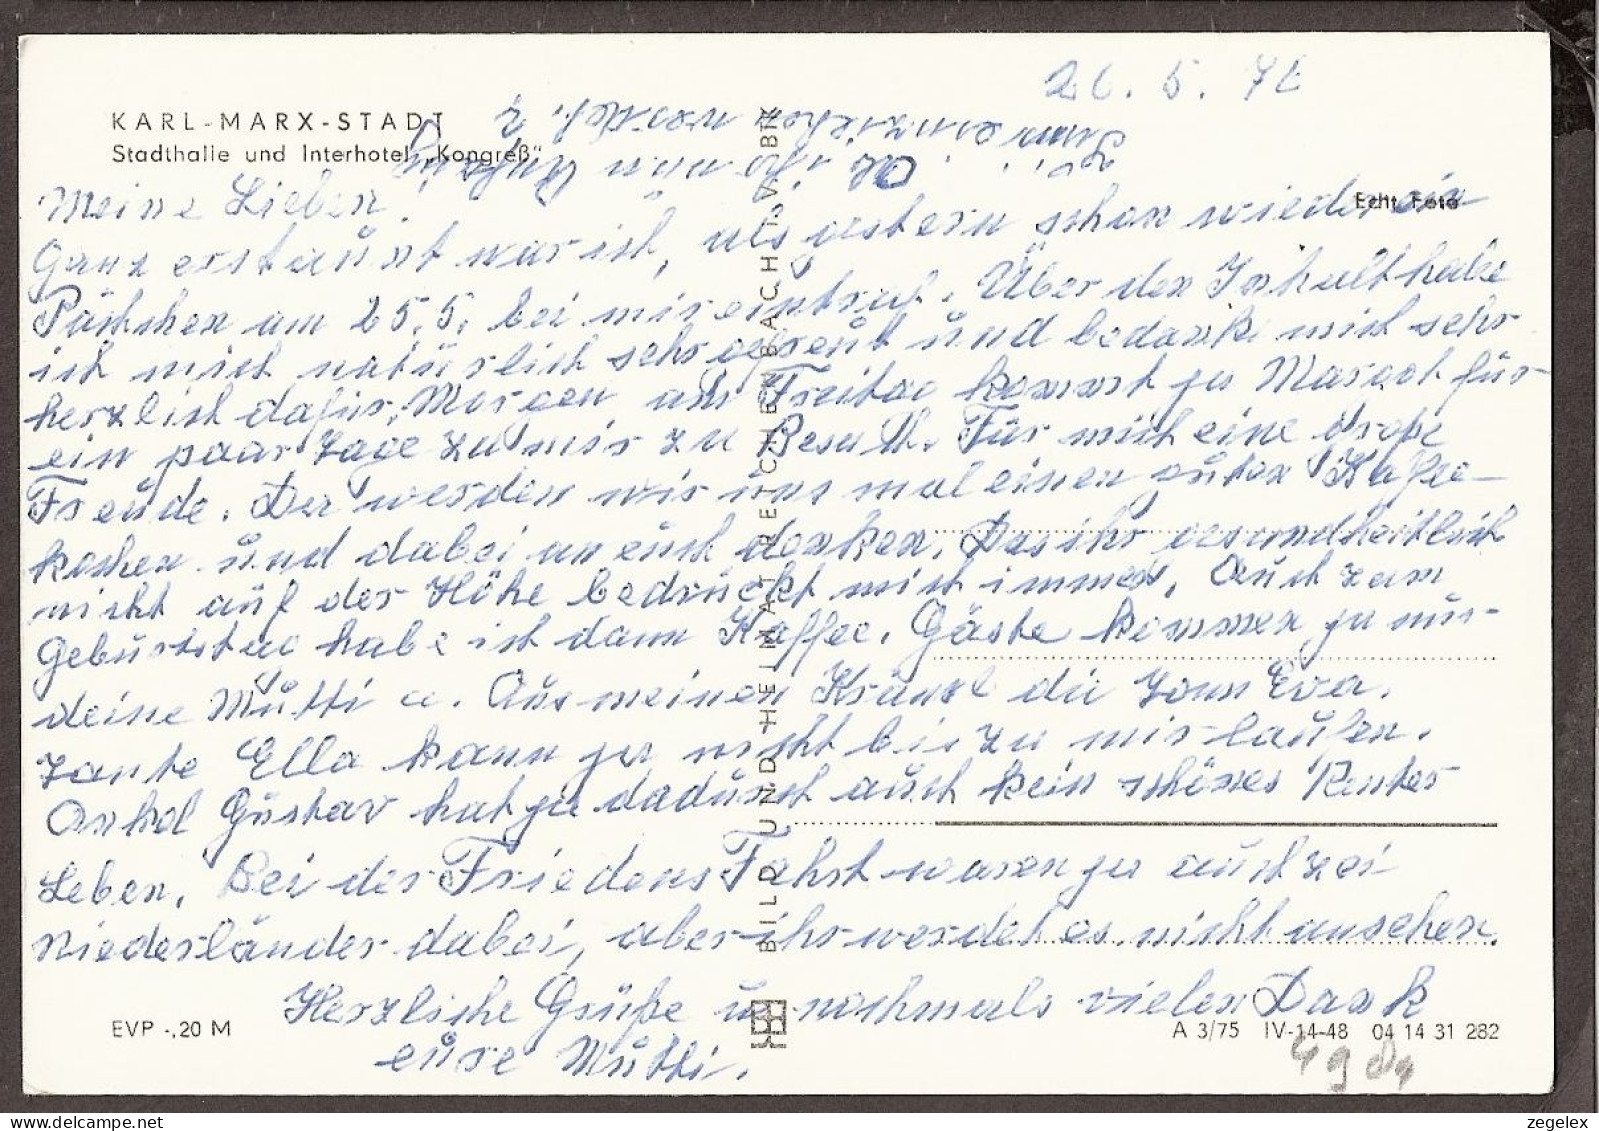 26. 5. 76
KARL-MARX-STADT
Stadthalle und Interhotel „Kongreß“
Echt Foto
Meine Lieben!
Ganz erstaunt war ich, als gestern schon wieder ein
Päckchen am 25.5. bei mir eintraf. Über den Inhalt habe
ich mich natürlich sehr gefreut und bedanke mich sehr
herzlich dafür. Morgen am Freitag kommt ja Margot für
ein paar Tage zu mir zu Besuch. Für mich eine große
Freude. Da werden wir uns mal einen guten Kaffee
kochen und dabei an euch denken. Das ihr gesundheitlich
nicht auf der Höhe bedrückt mich immer. Auch zum
Geburtstag habe ich dann Kaffee. Gäste kommen ja nur
deine Mutti u. Aus meinen Kränzl die Eva.
Tante Ella kann ja nicht bis zu mir laufen.
Onkel Gustav hat ja dadurch auch kein schönes Rentner
Leben. Bei der Friedens Fahrt waren ja auch zwei
Niederländer dabei, aber ihr werdet es nicht ansehen.
Herzliche Grüße u. nochmals vielen Dank
eure Mutti.
BILD UND HEIMAT REICHENBACH I. V. BFK
EVP -,20 M
A 3/75 IV-14-48 04 14 31 282